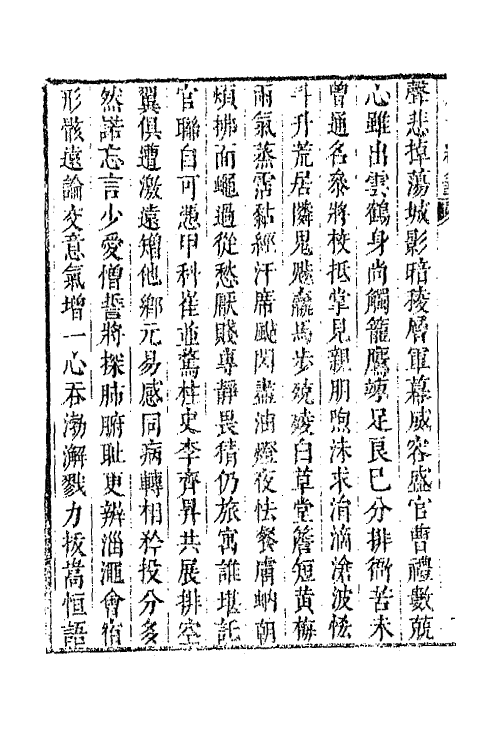 聲悲掉蕩城影暗稜層軍幕威容盛官曹禮數兢
心雖出雲鶴身尚觸籠鷹竦足良巳分排衙苦未
曾通名參將校抵掌見親朋喣沫求涓滴滄波怯
斗升荒居隣鬼魅羸馬步殑白草堂簷短黃梅
雨氣蒸霑黏經汗席颭閃盡油燈夜怯餐膚蚋朝
煩拂面蠅過從愁厭賤專靜畏猜仍旅寓誰堪託
官聯自可憑甲科崔並驚柱史李齊昇共展排空
翼俱遭激遠矰他鄉元易感同病轉相矜投分多
然諾忘言少愛僧誓將探肺腑恥更辨淄澠會宿
形骸遠論交意氣增一心吞渤澥戮力拔嵩恒語